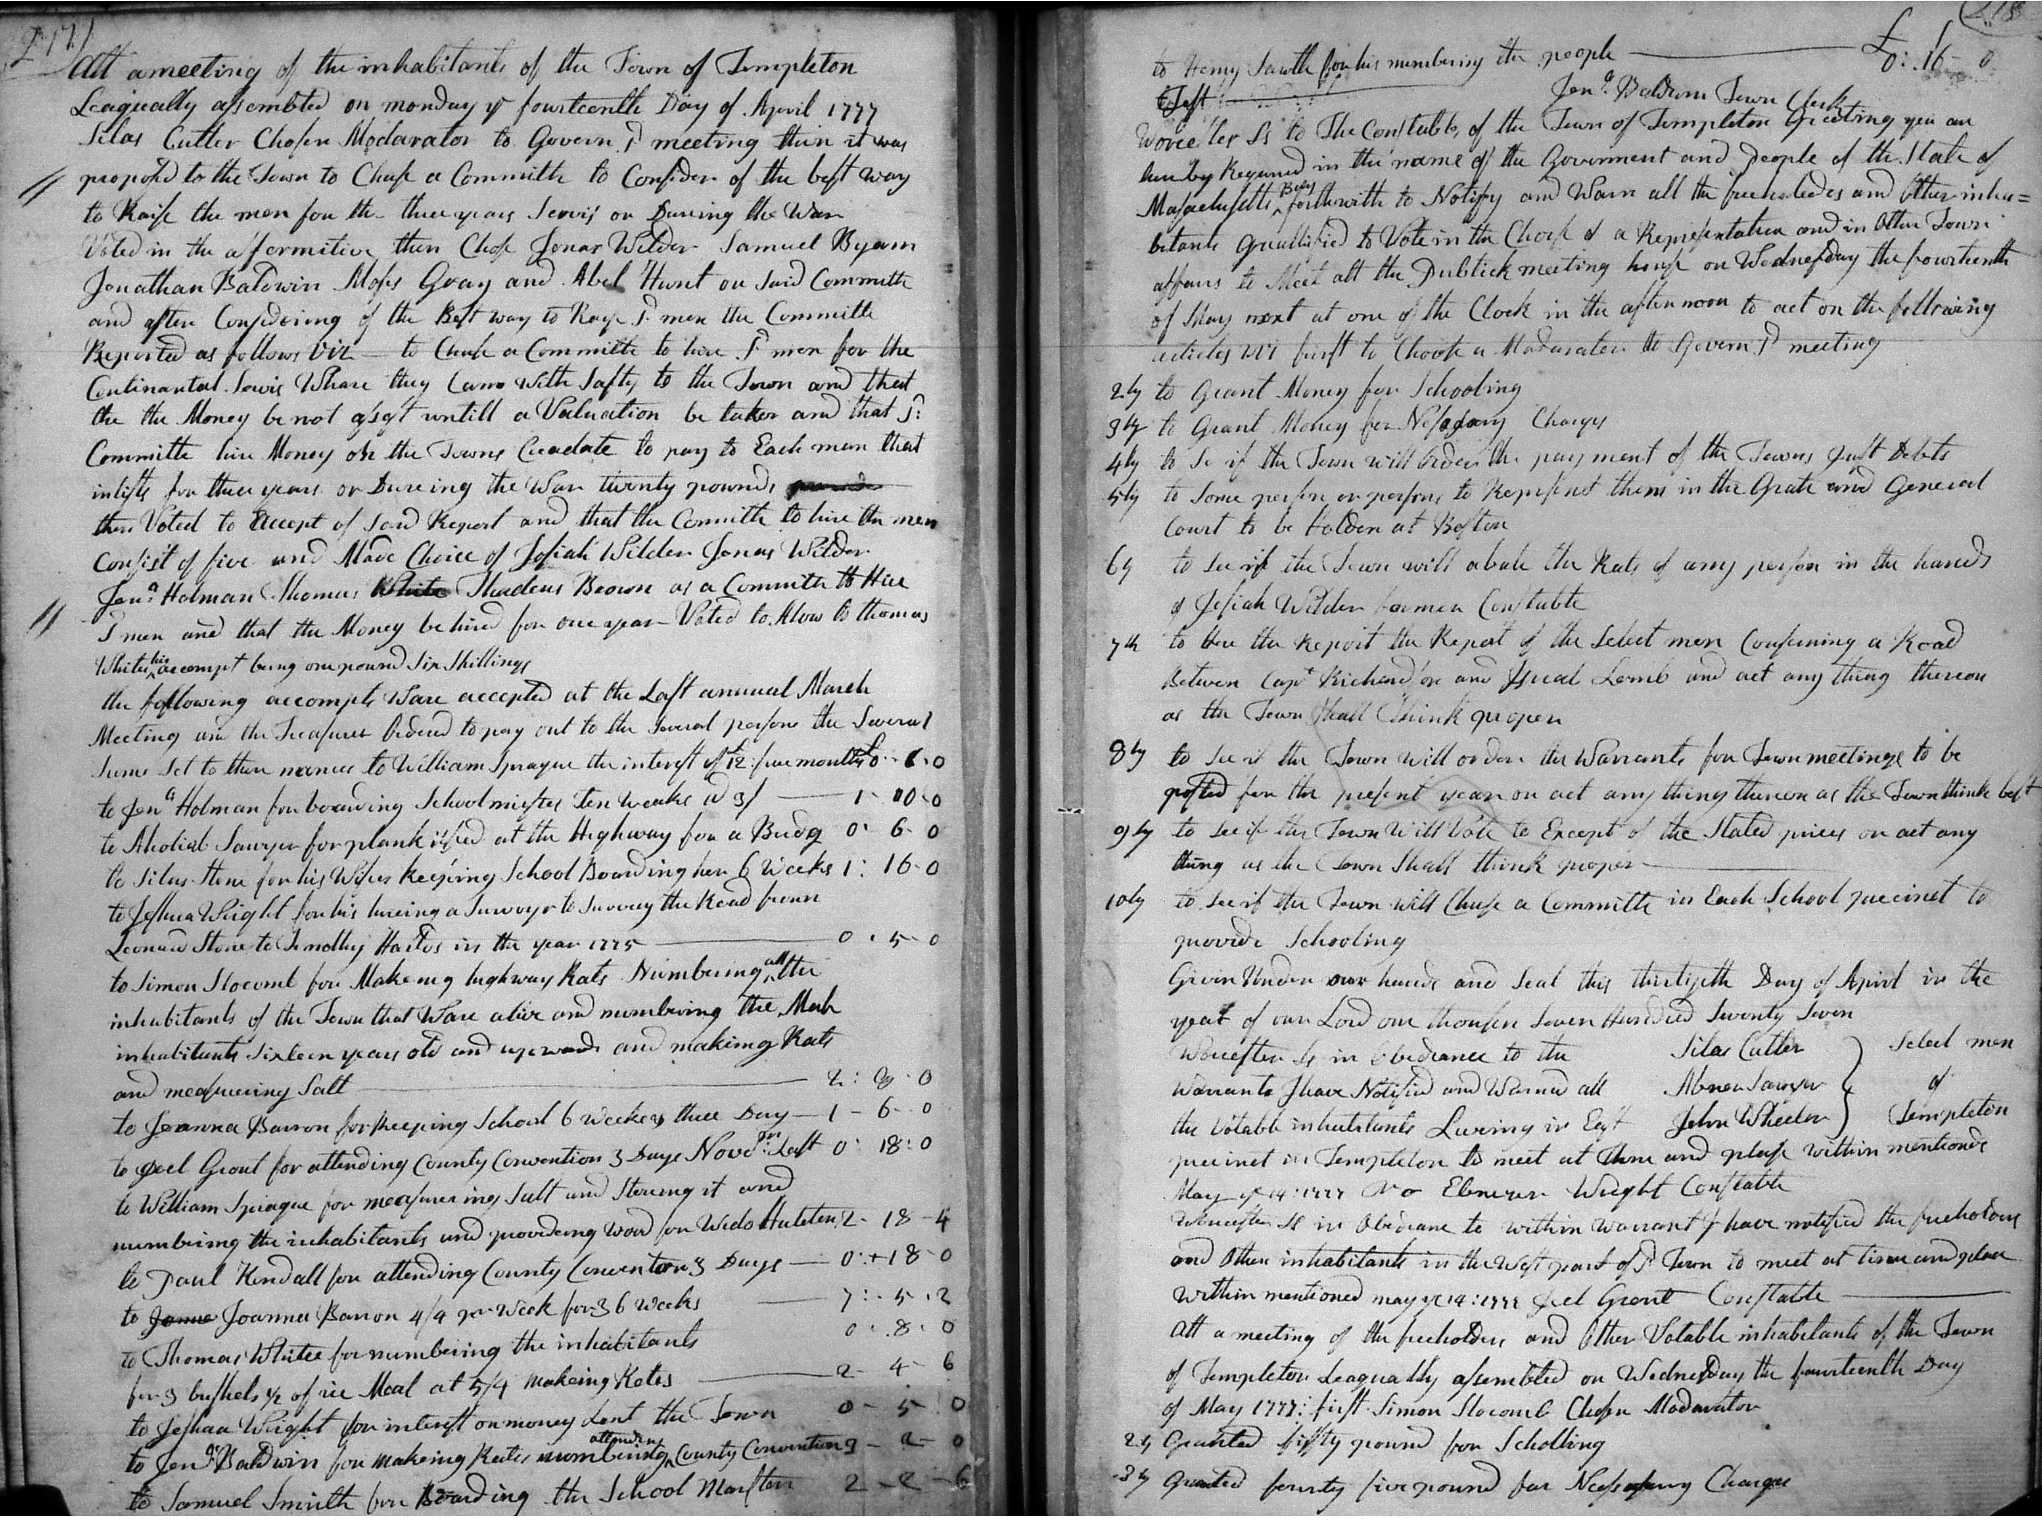 217)
Att a meeting of the inhabitants of the Town of Templeton
Leagually assembled on monday ye fourteenth Day of April 1777
Silas Cutler Chosen Modarator to Govern sd meeting then it was
propos'd to the Town to Chuse a Committe to Consider of the best way
to Raise the men for the three years Servis or Dureing the War
Voted in the affermitive then Chose Jonas Wilder Samuel Byam
Jonathan Baldwin Moses Gray and Abel Hunt on said Committe
and after Considering of the Best way to Rayse sd men the Committe
Reported as follows Viz to Chuse a Committe to hire sd men for the
Continantal Servis Whare they Cann with Safty to the Town and that
the the Money be not assest untill a Valuation be taken and that sd
Committe hire Money on the Towns Creadate to pay to Each man that
inlists for three years or Dureing the War twenty pounds
then Voted to Except of said Report and that the Committe to hire the men
Consist of five and Made Choice of Josiah Wilder Jonas Wilder
Jona Holman Thomas White Thadeus Brown as a Committe to Hire
sd men and that the Money be hired for one year Voted to Alow to thomas
White his accompt being one pound Six Shillings
the following accompts Ware accepted at the Last annual March
Meeting and the Treasurer Ordered to pay out to the Several persons the Several
sums Set to there names to William Sprague the interest of £12: five months £0-6-0
to Jona Holman for boarding School mistres Ten Weeks at 3/ 1-10-0
to Aholiab Sawyer for plank used at the Highway for a Bridg 0-6-0
to Silas Stone for his Wifes Keeping School Boarding her 6 Weeks 1:16-0
to Joshua Wright for his hireing a Survoyr to Survey the Road from
Leonard Stone to Timothy Hastos in the year 1775 0-5-0
to Simon Slocomb for Makeing highway Rats Numbering all the
inhabitants of the Town that Ware alive and numbering the Male
inhabitants Sixteen years old and upwards and making Rats
and measureing Salt 2: 9-0
to Joanna Barron for Keeping School 6 Weeks three Day 1-6-0
to Joel Grout for attending County Convention 3 Days Novr Last 0:18:0
to William Sprague for measureing Salt and Storeing it and
numbering the inhabitants and provideing wood for Wido 2-18-4
to Paul Kendall for attending County Convention 3 Days 0:18-0
to Joanna Barron 4/4 pr Week for 36 Weeks 7:-5-2
to Thomas White for numbering the inhabitants 0:8-0
for 3 bushels ½ of rie Meal at 5/4 makeing Rates 2-4-6
to Joshua Wright for interest on money Lent the Town 0-5-0
to Jona Baldwin for makeing Rates numbering attending County Convention 3-2-0
to Samuel Smith for Boarding the School Master 2-2-6
218
to Henry Sawtle for his numbering the people £0:16-0
Test Jona Baldwin Town Clerk
Worcester Ss to The Constubls of the Town of Templeton Greeting you are
hereby Required in the name of the Goverment and People of the State of
Masachusetts Bay forthwith to Notify and Warn all the freeholdes and Other inha=
bitants Quallified to Vote in the Choise of a Representative and in Other Town
affairs to Meet att the Publick meeting house on Wednesday the fourteenth
of May next at one of the Clock in the afternoon to act on the following
articles viz first to Choose a Modarator to Govern sd meeting
2ly to Grant Money for Schooling
3ly to Grant Money for Nesessary Charges
4ly to Se if the Town will Order the payment of the Towns Just Debts
5ly to Some person or persons to Represent them in the Grate and General
Court to be holden at Boston
6ly to See if the Town will abate the Rats of any person in the hands
of Josiah Wilder former Constable
7th to hear the Report the Report of the Select men Conserning a Road
Between Capt Richardson and Isreal Lamb and act any thing thereon
as the Town Shall Think proper
8ly to See if the Town will order the Warrants for Town meetings to be
posted for the present year or act any thing thereon as the Town think best
9ly to See if the Town Will Vote to Except of the Stated prices or act any
thing as the Town Shall think proper
10ly to See if the Town will Chuse a Committe in Each School precinct to
provide Schooling
Given Under our hands and Seal this thirtyeth Day of April in the
year of our Lord one thousen Seven Hundred Seventy Seven
Worcester Ss in obediance to the Silas Cutler Select men
Warrants I have Notified and Warned all Abner Sawyer of
the Votable inhabitants Liveing in East John Wheeler Templeton
precinct in Templeton to meet at time and place within mentioned
May ye 14:1777 Ebenezer Wright Constable
Worcester Ss in Obediane to within Warrant I have notified the freeholders
and Other inhabitants in the West part of sd Town to meet at time and place
within mentioned may ye 14:1777 Joel Grout Constable
Att a meeting of the freeholders and Other Votable inhabitants of the Town
of Templeton Leagually assembled on Wednesday the fourteenth Day
of May 1777: first Simon Slocomb Chosen Modarator
2ly Granted fifty pound for Scholling
3ly Granted fourty five pound for Nesessary Charges